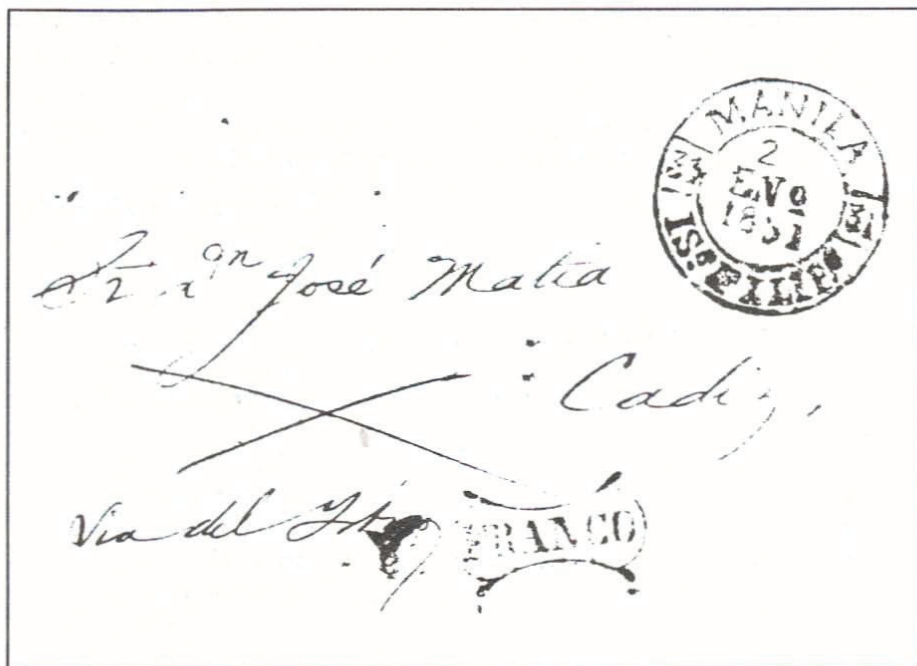 MANILA
2
ENº
1851
ISˢ FILIPˢ
Sr Dn José Matia
Cadiz,
Via del
FRANCO